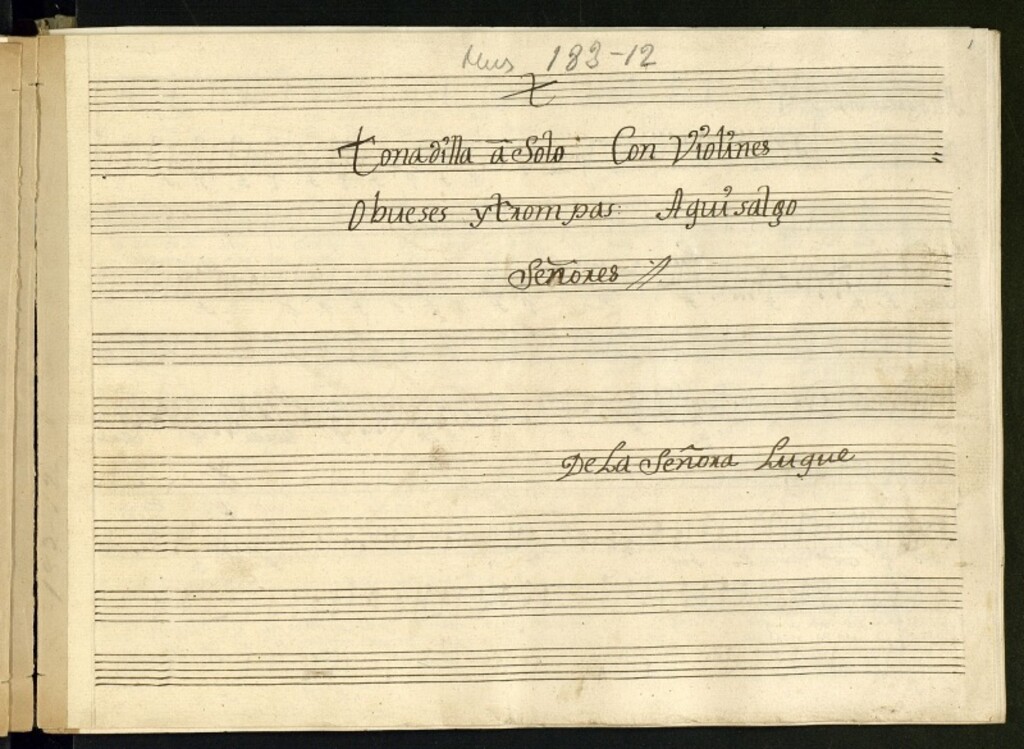 Mus 183-12
1
t
Tonadilla a Solo Con Violines
Obueses y trompas: Aqui salgo
Señores //.
De La Señora Luque